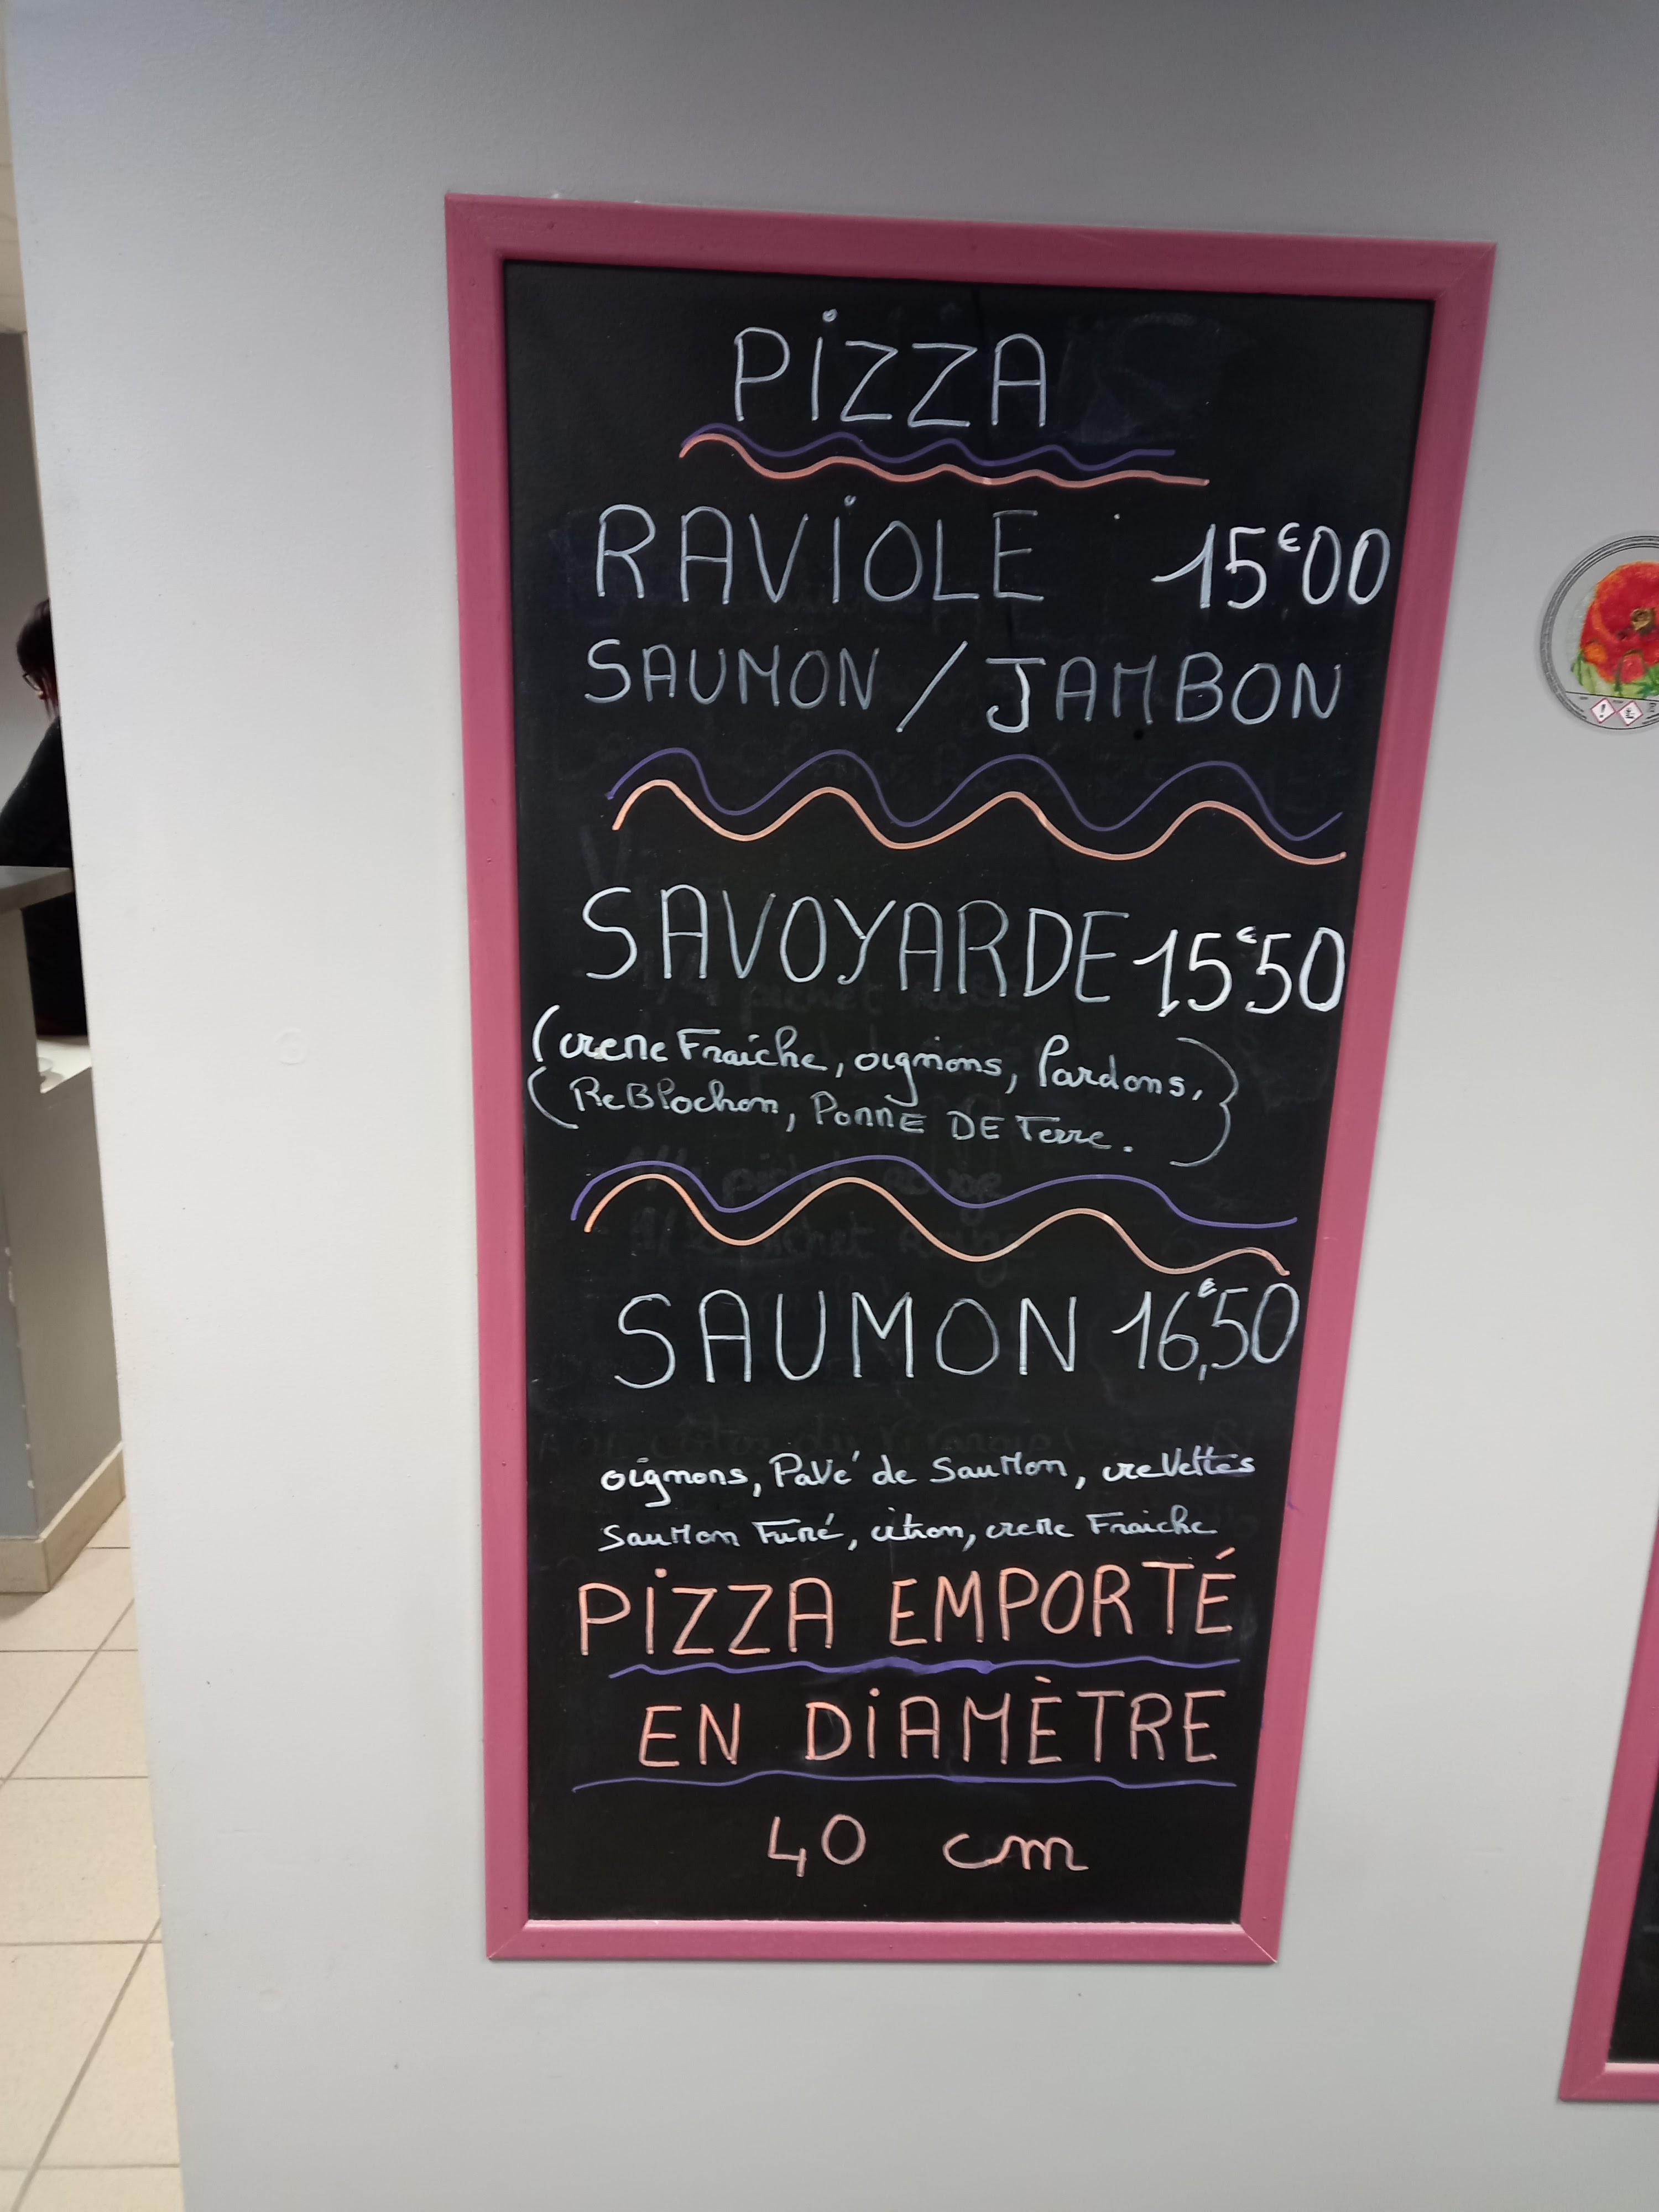 PiZZA
RAViOLE 15€00
SAUMON / JAMBON
SAVOYARDE 15€50
(creme Fraiche, oignons, Lardons,
ReBlochon, Pomme DE Terre.)
SAUMON 16,€50
oignons, Pavé de SauMon, creVettes
SauMon Fumé, citron, creme Fraiche
PiZZA EMPORTÉ
EN DiAMÈTRE
40 cm